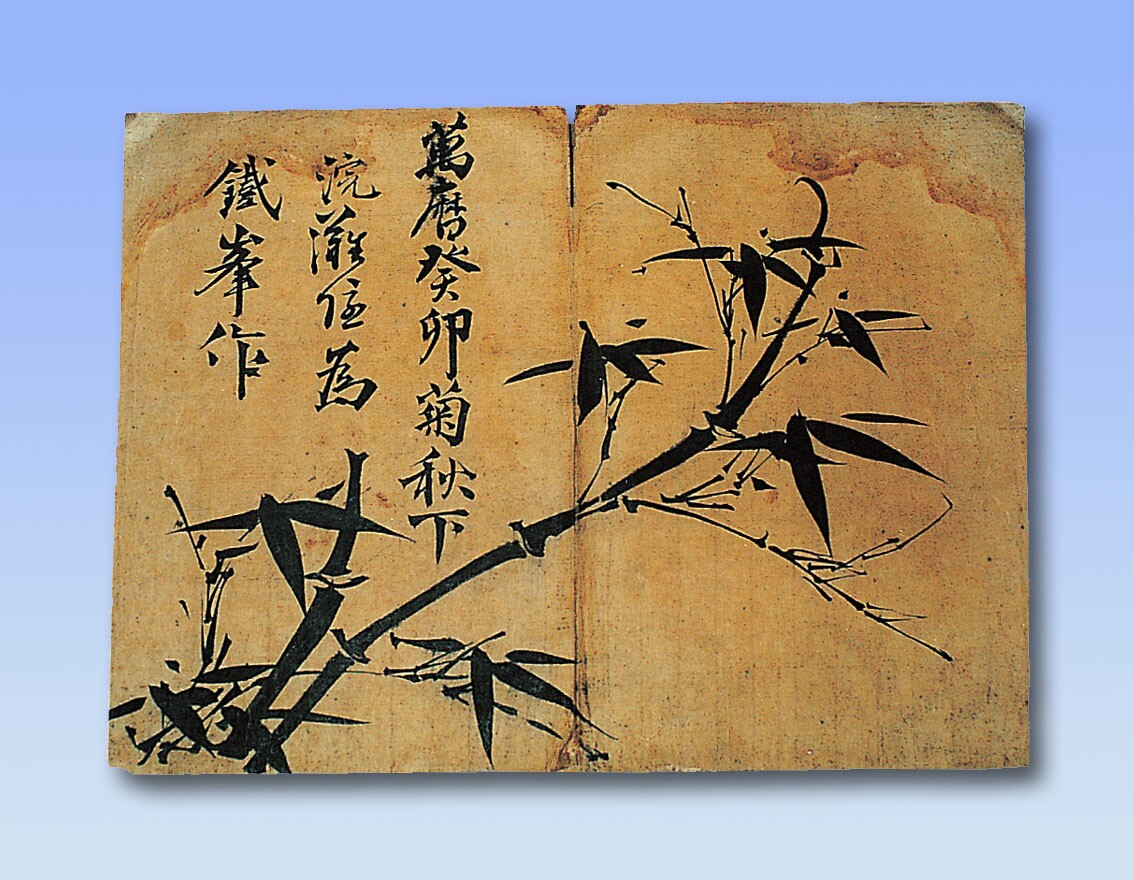 萬曆癸卯菊秋下
浣灘為
鐵峯作